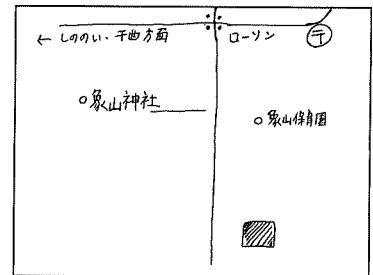 ← しののい、千曲方面
ローソン
〒
象山神社
象山保育園